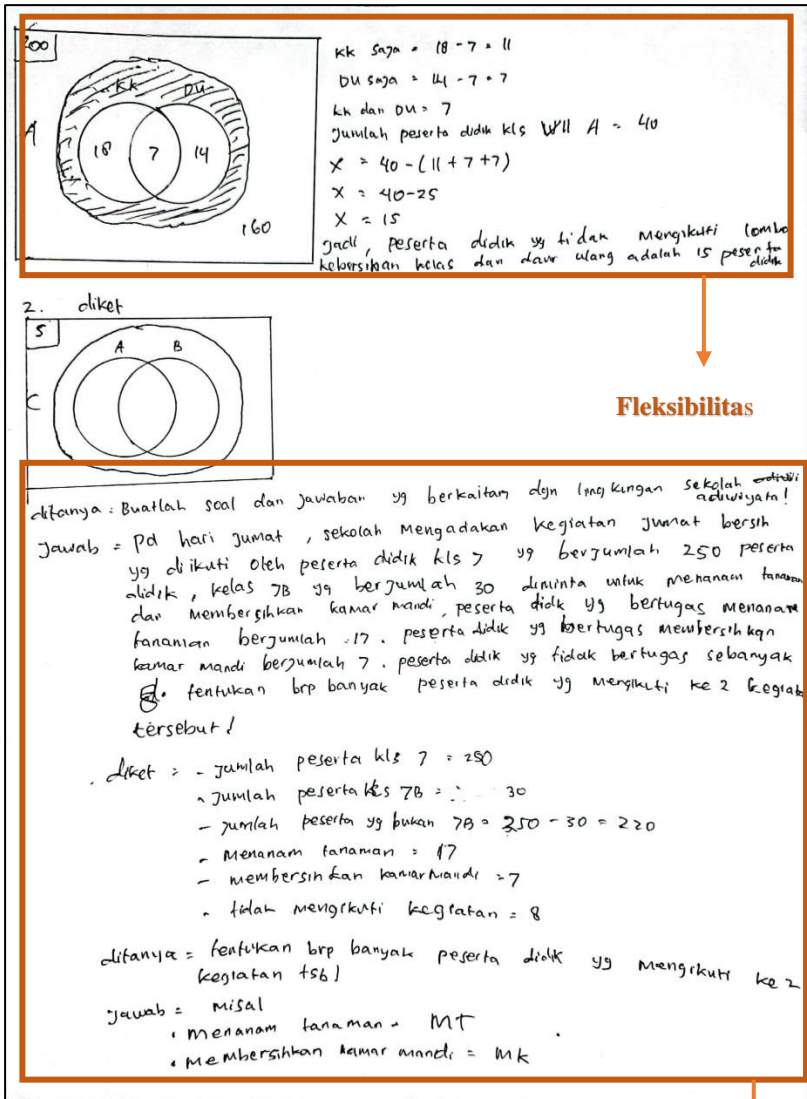 200
KK DU
A
18 7 14
160
KK saja = 18 - 7 = 11
DU saja = 14 - 7 = 7
KK dan DU = 7
Jumlah peserta didik kls VII A = 40
X = 40 - (11 + 7 + 7)
X = 40 - 25
X = 15
Jadi, peserta didik yg tidak mengikuti lomba
kebersihan kelas dan daur ulang adalah 15 peserta
didik
Fleksibilitas
2. diket
S
A B
C
ditanya = Buatlah soal dan jawaban yg berkaitan dgn lingkungan sekolah
adiwiyata!
Jawab = Pd hari jumat, sekolah mengadakan kegiatan jumat bersih
yg diikuti oleh peserta didik kls 7 yg berjumlah 250 peserta
didik, kelas 7B yg berjumlah 30 diminta untuk menanam tanaman
dan membersihkan kamar mandi, peserta didik yg bertugas menanam
tanaman berjumlah 17. peserta didik yg bertugas membersihkan
kamar mandi berjumlah 7. peserta didik yg tidak bertugas sebanyak
8. tentukan brp banyak peserta didik yg mengikuti ke 2 kegiatan
tersebut!
diket = - jumlah peserta kls 7 = 250
- jumlah peserta kls 7B = 30
- jumlah peserta yg bukan 7B = 250 - 30 = 220
- menanam tanaman = 17
- membersihkan kamar mandi = 7
- tidak mengikuti kegiatan = 8
ditanya = tentukan brp banyak peserta didik yg mengikuti ke 2
kegiatan tsb!
Jawab = misal
• menanam tanaman = MT
• membersihkan kamar mandi = MK